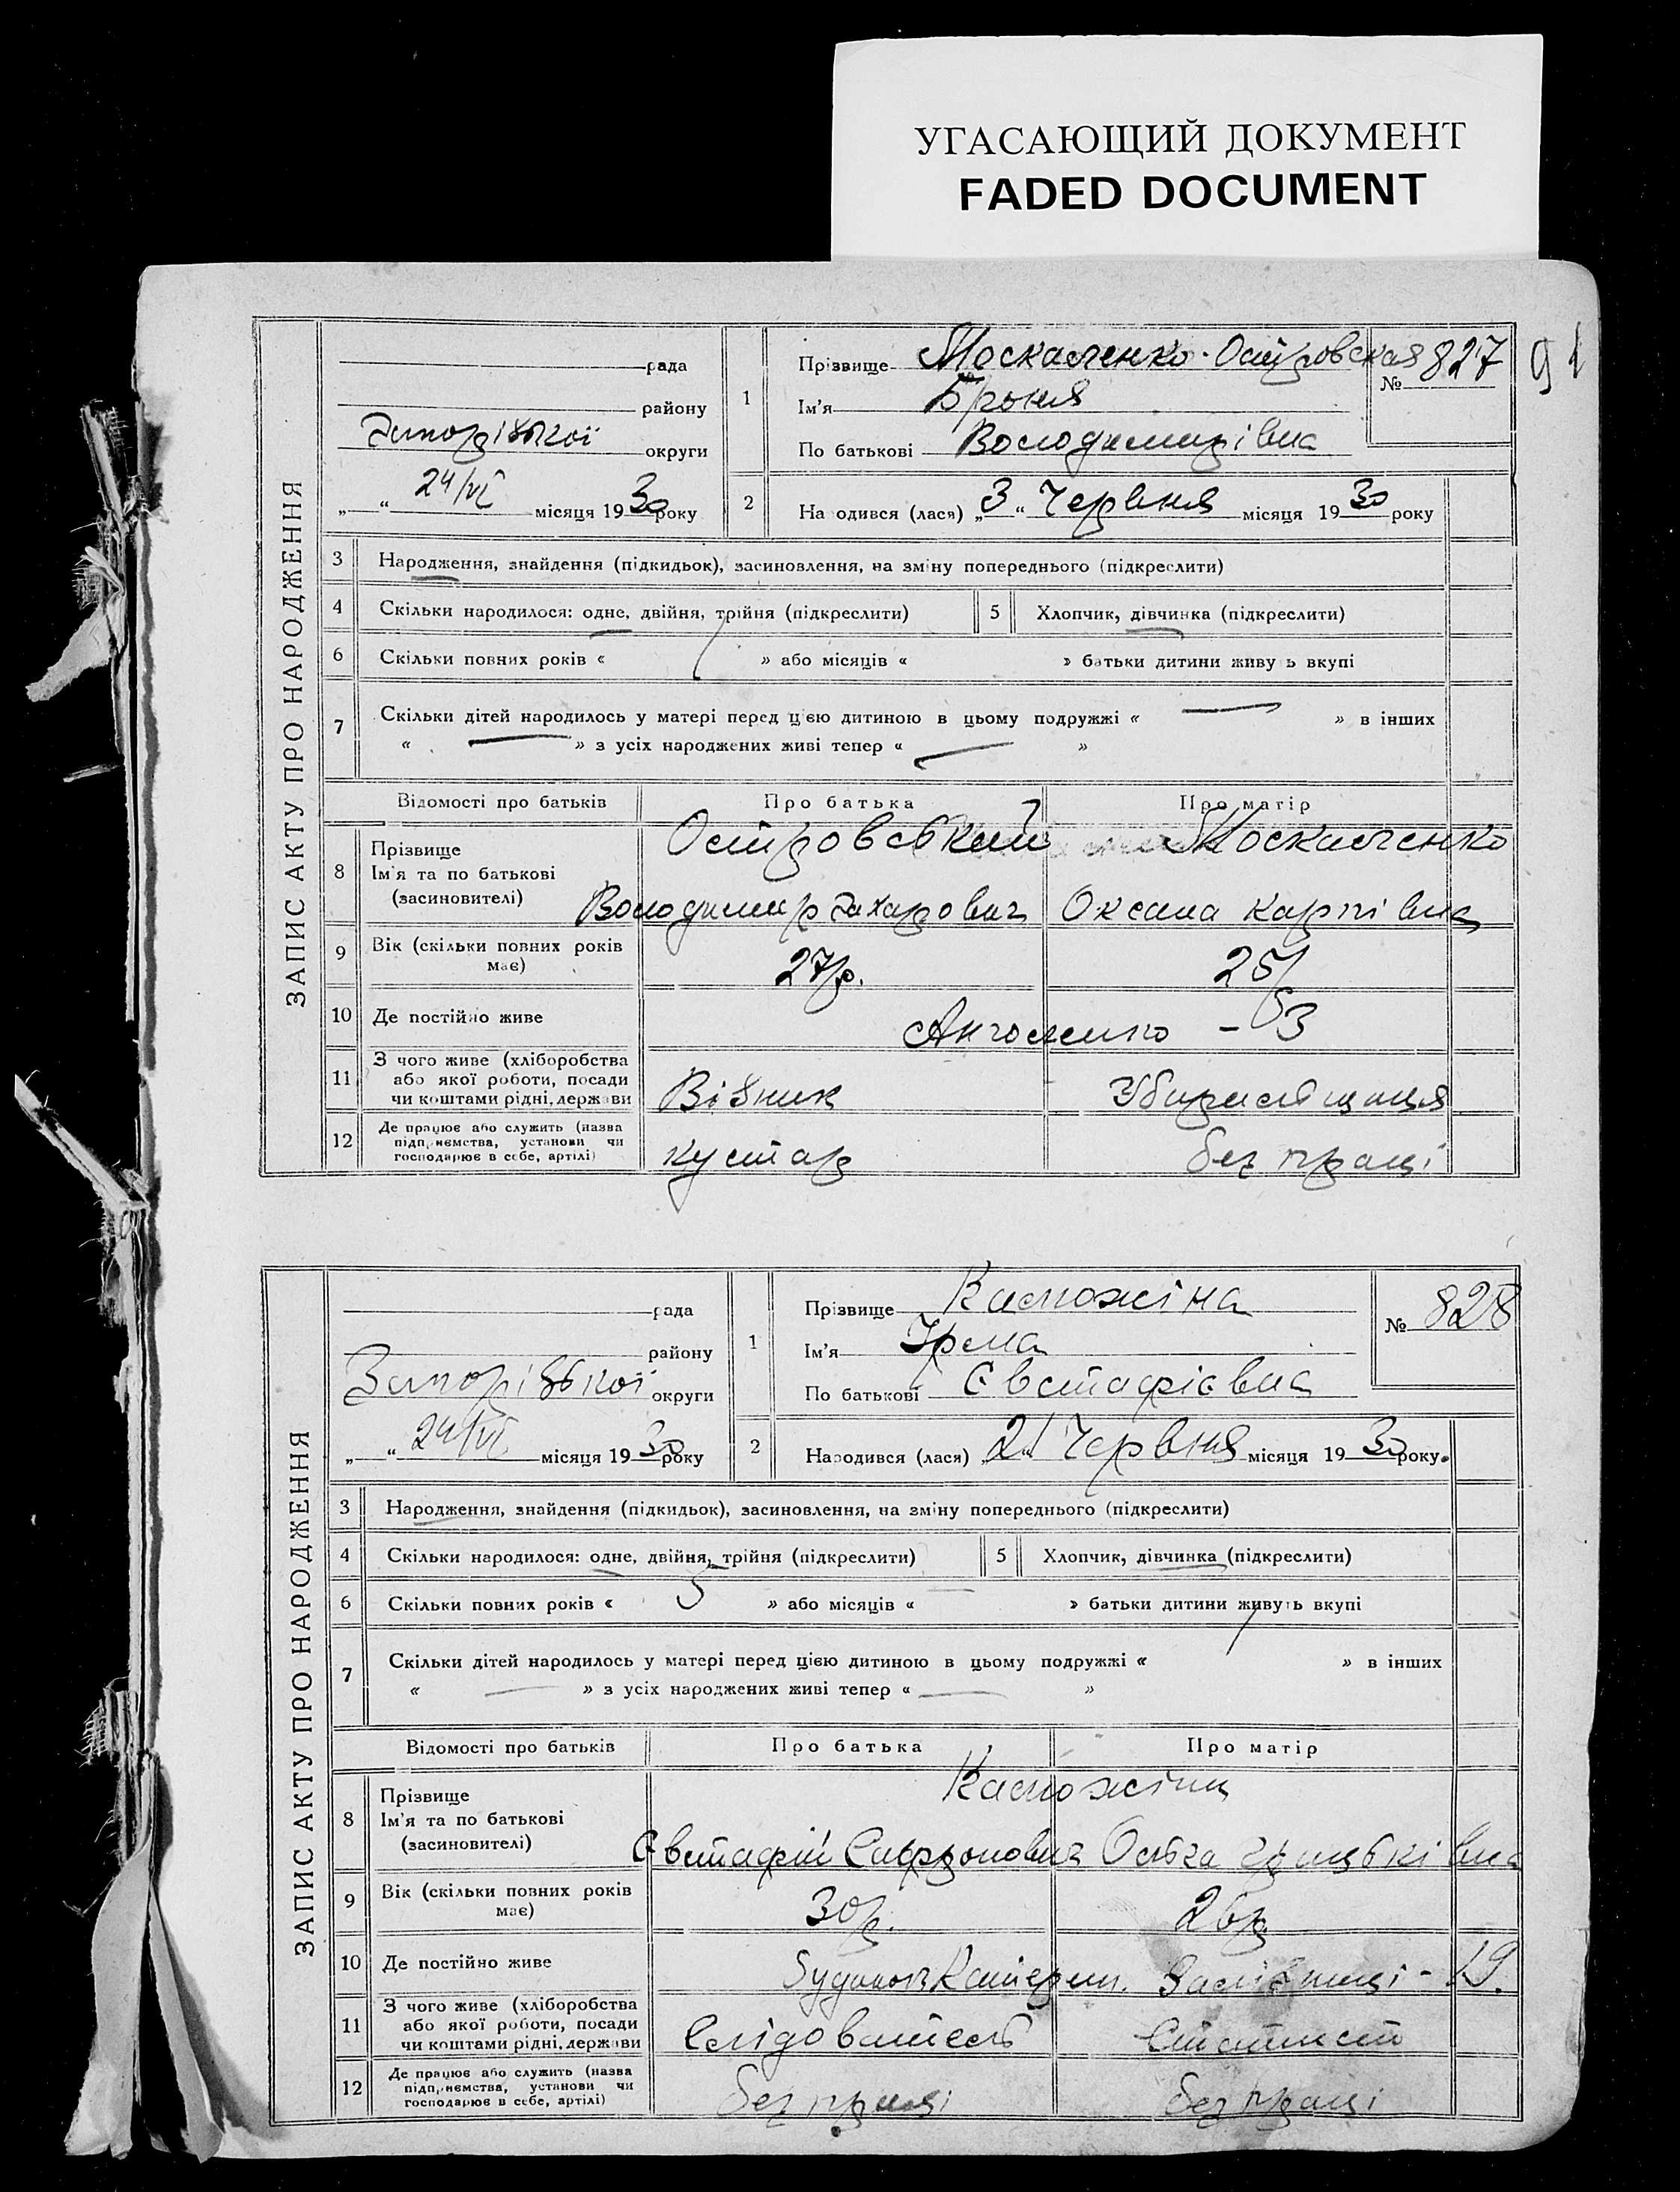 УГАСАЮЩИЙ ДОКУМЕНТ
FADED DOCUMENT
91
ЗАПИС АКТУ ПРО НАРОДЖЕННЯ
рада
району
Запорізької округи
„ “ 24/VI місяця 1930 року
1 Прізвище Москальченко-Островская
Ім'я Броня
По батькові Володимирівна
№ 827
2 На одився (лася) „3“ Червня місяця 1930 року
3 Народження, знайдення (підкидьок), засиновлення, на зміну попереднього (підкреслити)
4 Скільки народилося: одне, двійня, трійня (підкреслити) 5 Хлопчик, дівчинка (підкреслити)
6 Скільки повних років « » або місяців « » батьки дитини живу ь вкупі
7 Скільки дітей народилось у матері перед цією дитиною в цьому подружжі « — » в інших
« — » з усіх народжених живі тепер « — »
Відомості про батьків Про батька Про матір
8 Прізвище Островський Москальченко
Ім'я та по батькові
(засновителі) Володимир Захарович Оксана Карпівна
9 Вік (скільки повних років має) 27р. 25
10 Де постійно живе - 53
11 З чого живе (хліборобства
або якої роботи, посади
чи коштами рідні, держави Візник
12 Де працює або служить (назва
підприємства, установи чи
господарює в себе, артілі) кустар без праці
ЗАПИС АКТУ ПРО НАРОДЖЕННЯ
рада
району
Запорізької округи
„ “ 24/VI місяця 1930 року
1 Прізвище Каположіна
Ім'я Ірма
По батькові Євстафієвна
№ 828
2 Народився (лася) „21“ Червня місяця 1930 року.
3 Народження, знайдення (підкидьок), засиновлення, на зміну попереднього (підкреслити)
4 Скільки народилося: одне, двійня, трійня (підкреслити) 5 Хлопчик, дівчинка (підкреслити)
6 Скільки повних років « 5 » або місяців « — » батьки дитини живуть вкупі
7 Скільки дітей народилось у матері перед цією дитиною в цьому подружжі « » в інших
« — » з усіх народжених живі тепер « — »
Відомості про батьків Про батька Про матір
8 Прізвище
Ім'я та по батькові
(засиновителі) Євстафій Сафронович Ольга
9 Вік (скільки повних років має) 30р. 26р
10 Де постійно живе - 19.
11 З чого живе (хліборобства
або якої роботи, посади
чи коштами рідні, держави Слідователь Статист
12 Де працює або служить (назва
підприємства, установи чи
господарює в себе, артілі) без праці без праці